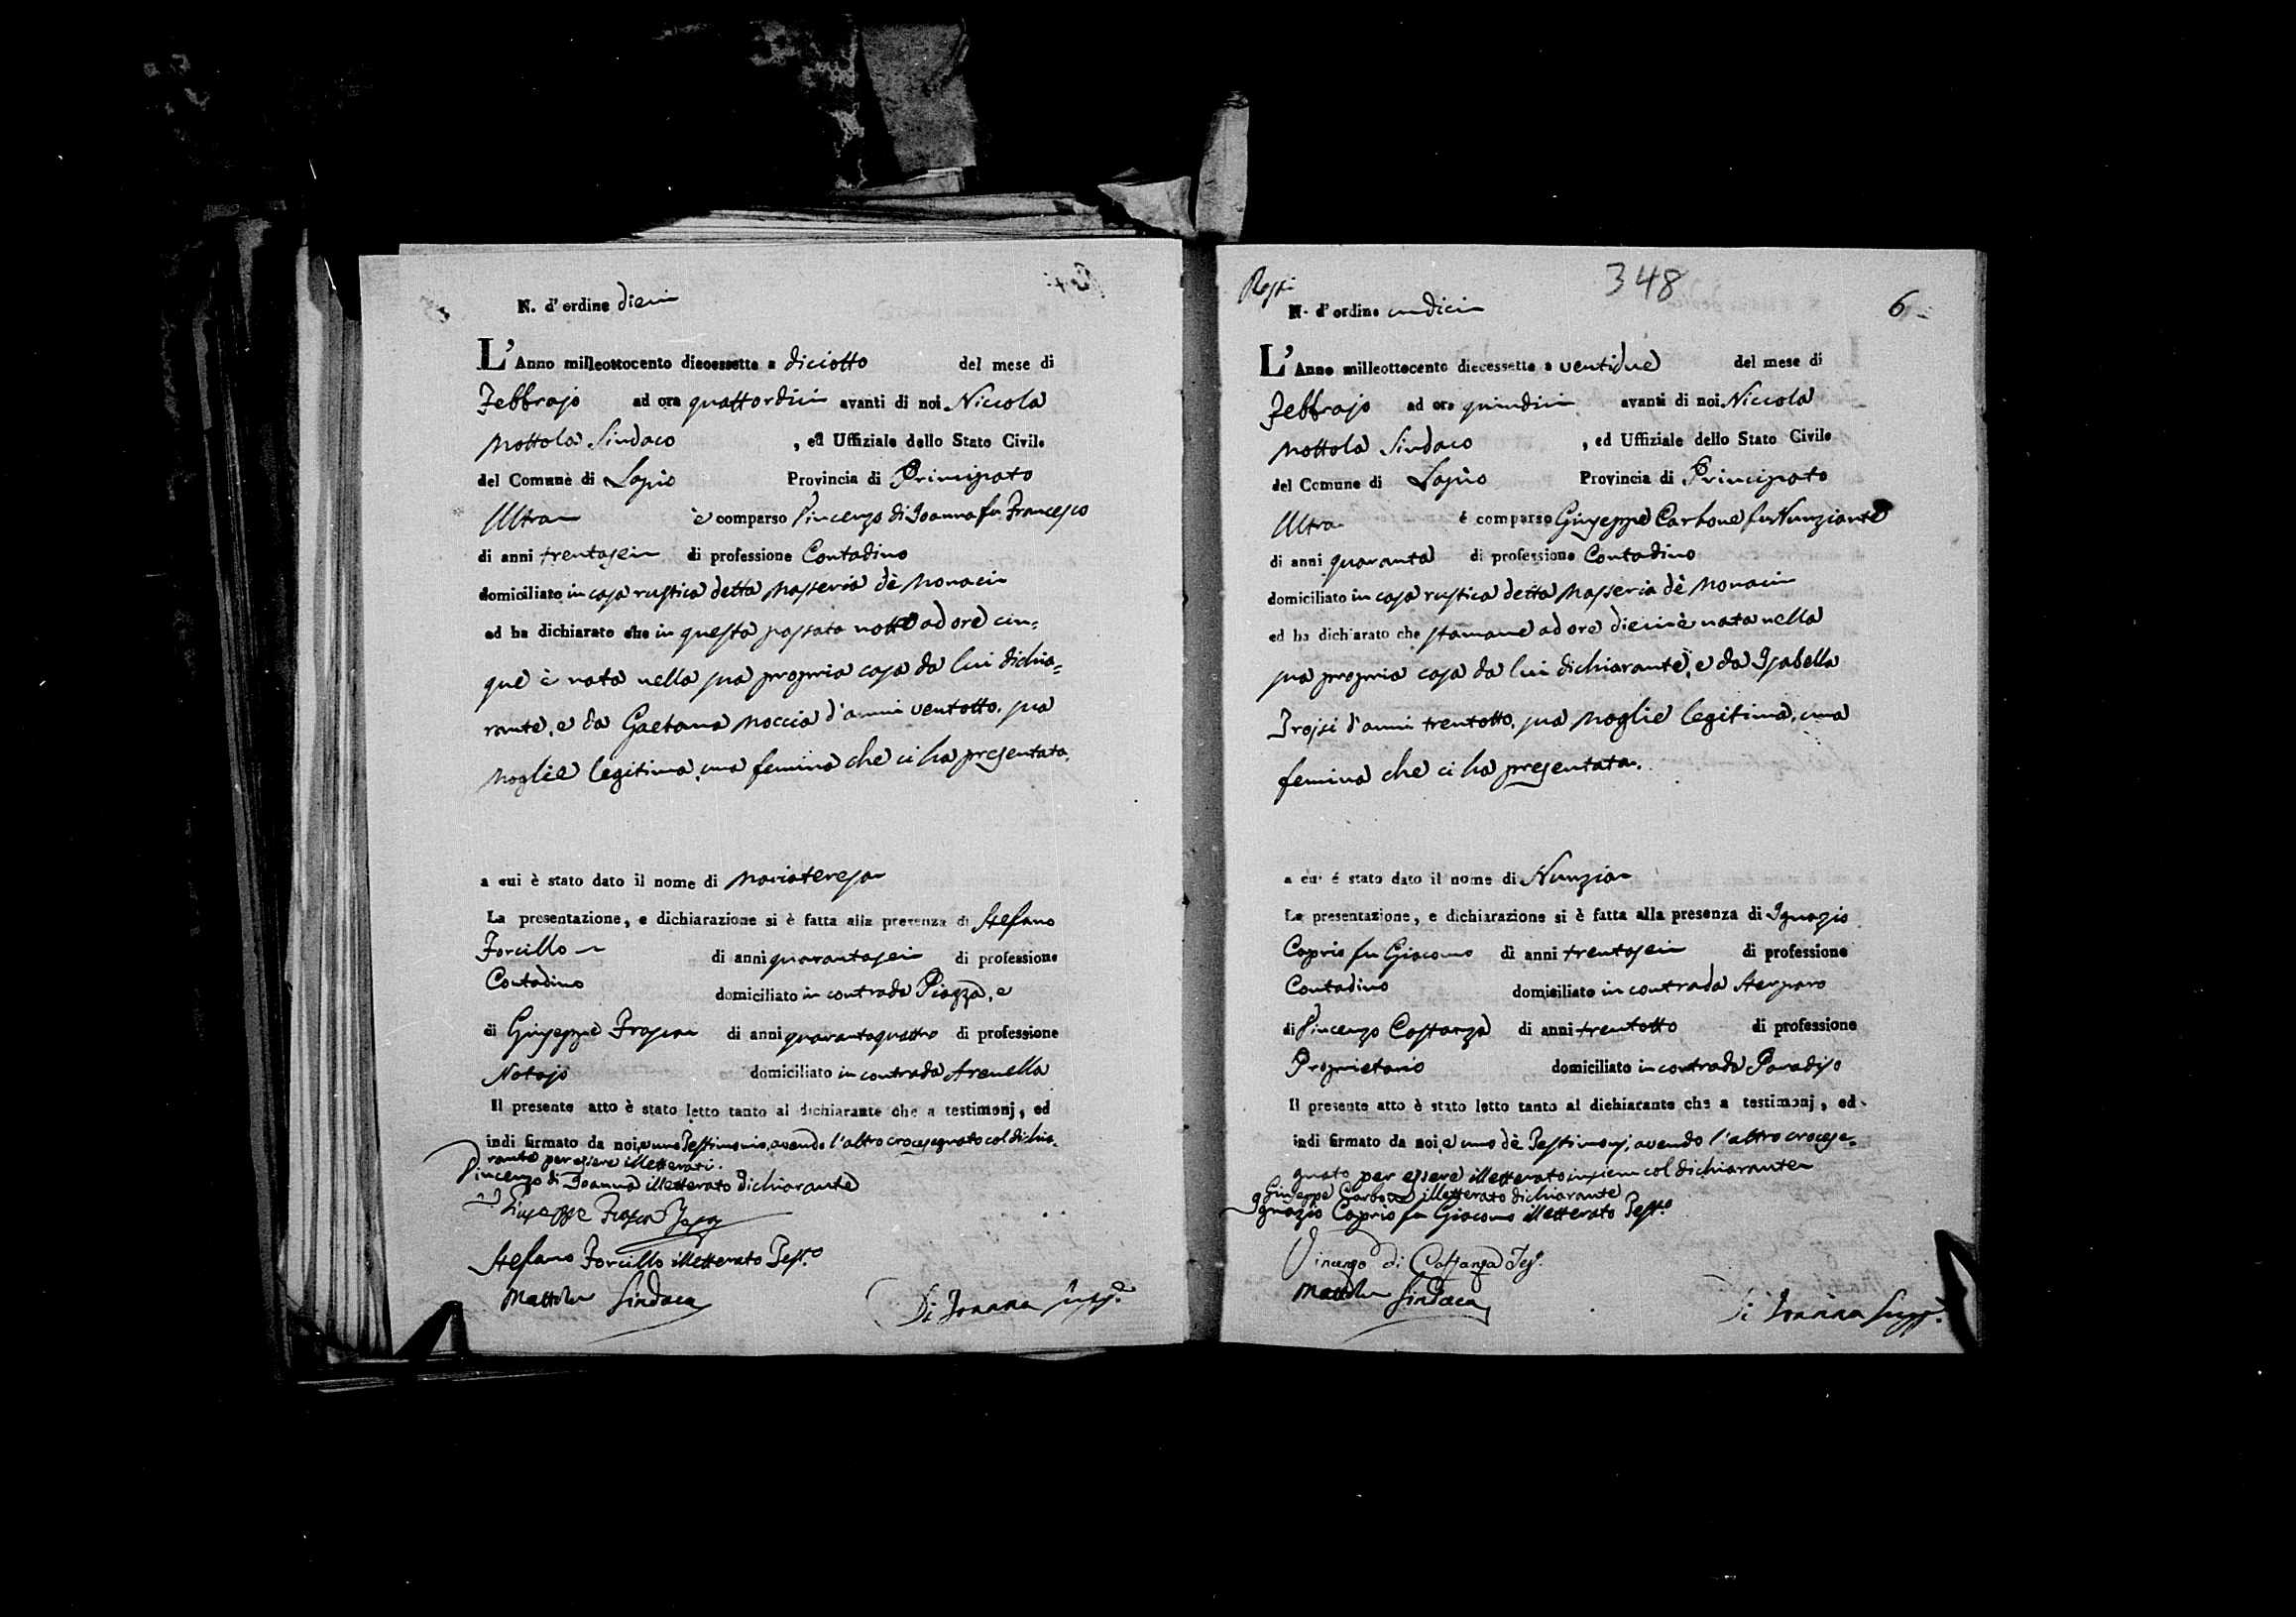 N. d'ordine dieci
L'Anno milleottocento diecessette a diciotto del mese di
Febbrajo ad ora quattordici avanti di noi Niccola
Mottola Sindaco , ed Uffiziale dello Stato Civile
del Comune di Lapio Provincia di Principato
Ultra è comparso Vincenzo di Joanna fu Francesco
di anni trentasei di professione Contadino
domiciliato in casa rustica detta Masseria de Monaci
ed ha dichiarato che in questa passata notte ad ore cin=
que è nata nella sua propria casa da lui dichia=
rante, e da Gaetana Moccia d'anni ventotto, sua
Moglie legitima, una femina che ci ha presentata.
a cui è stato dato il nome di Mariateresa
La presentazione, e dichiarazione si è fatta alla presenza di Stefano
Forcillo di anni quarantasei di professione
Contadino domiciliato in contrada Piazza, e
di Giuseppe Trojsi di anni quarantaquattro di professione
Notajo domiciliato in contrada Arenella
Il presente atto è stato letto tanto al dichiarante che a testimonj, ed
indi firmato da noi, e uno Testimonio, avendo l'altro crocesegnato col dichia=
rante per essere illetterati.
Vincenzo di Joanna illetterato dichiarante
Giuseppe
Stefano Forcillo illetterato Test.o
Mottola Sindaco Di Joanna
Reg.
348
6
N. d'ordine undici
L'Anno milleottocento diecessette a ventidue del mese di
Febbrajo ad ora quindici avanti di noi Niccola
Mottola Sindaco , ed Uffiziale dello Stato Civile
del Comune di Lapio Provincia di Principato
Ultra è comparso Giuseppe Carbone fu Nunziante
di anni quaranta di professione Contadino
domiciliato in casa rustica detta Masseria de Monaci
ed ha dichiarato che stamane ad ore dieci è nata nella
sua propria casa da lui dichiarante, e da Isabella
Trojsi d'anni trentotto, sua Moglie legitima, una
femina che ci ha presentata.
a cui é stato dato il nome di Nunzia
La presentazione, e dichiarazione si è fatta alla presenza di Ignazio
Caprio fu Giacomo di anni trentasei di professione
Contadino domiciliato in contrada Sterparo
di Vincenzo Costanza di anni trentotto di professione
Proprietario domiciliato in contrada Paradiso
Il presente atto è stato letto tanto al dichiarante che a testimonj, ed
indi firmato da noi, e uno de Testimonj, avendo l'altro crocese=
gnato per essere illetterato insiem col dichiarante
Giuseppe Carbone illetterato dichiarante
Ignazio Caprio fu Giacomo illetterato Test.o
Vincenzo di Costanza Tes.
Mottola Sindaco Di Joanna